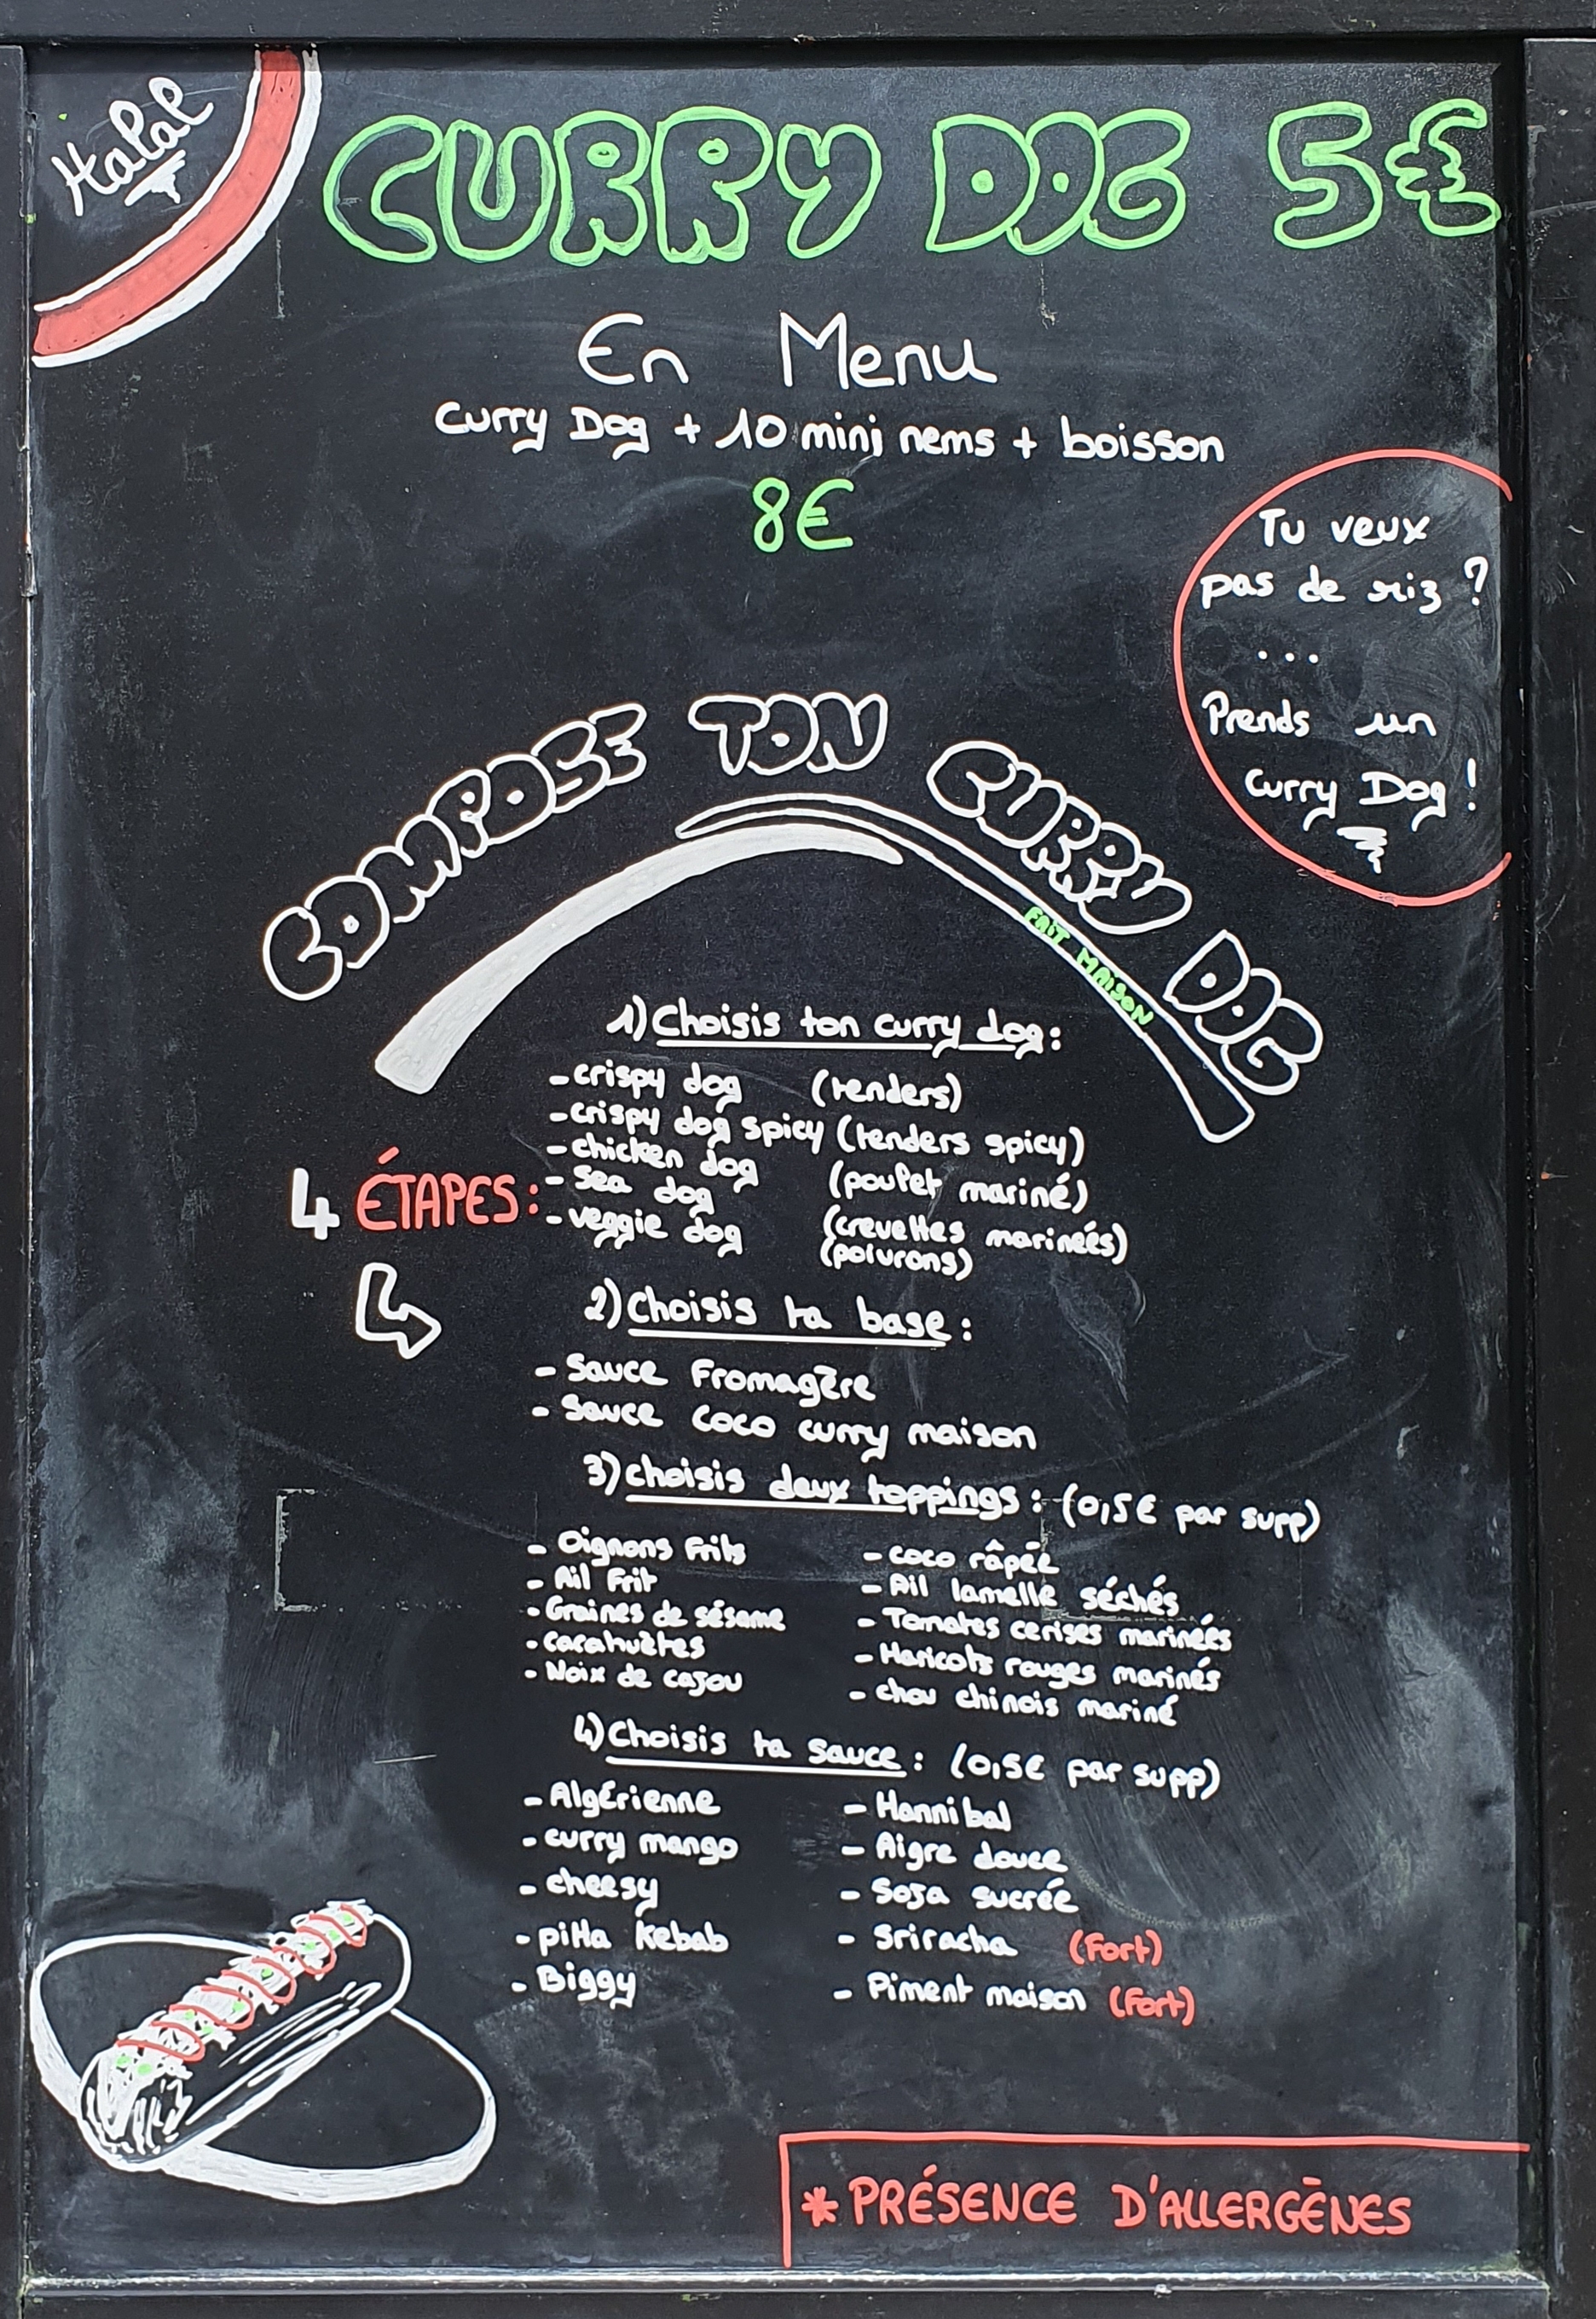 Halal
CURRY DOG 5€
En Menu
Curry Dog + 10 mini nems + boisson
8€
Tu veux
pas de riz ?
...
Prends un
Curry Dog !
COMPOSE TON CURRY DOG
FAIT MAISON
1) Choisis ton curry dog :
- crispy dog (tenders)
- crispy dog spicy (tenders spicy)
- chicken dog (poulet mariné)
- sea dog (crevettes marinées)
- veggie dog (poivrons)
4 ÉTAPES :
2) Choisis ta base :
- Sauce Fromagère
- Sauce coco curry maison
3) choisis deux toppings : (0,5€ par supp)
- Oignons Frits
- Ail Frit
- Graines de sésame
- cacahuètes
- Noix de cajou
- coco râpée
- Ail lamelle séchés
- Tomates cerises marinées
- Haricots rouges marinés
- chou chinois mariné
4) Choisis ta sauce : (0,5€ par supp)
- Algérienne
- curry mango
- cheesy
- pitta kebab
- Biggy
- Hannibal
- Aigre douce
- Soja sucrée
- Sriracha (Fort)
- Piment maison (Fort)
* PRÉSENCE D'ALLERGÈNES